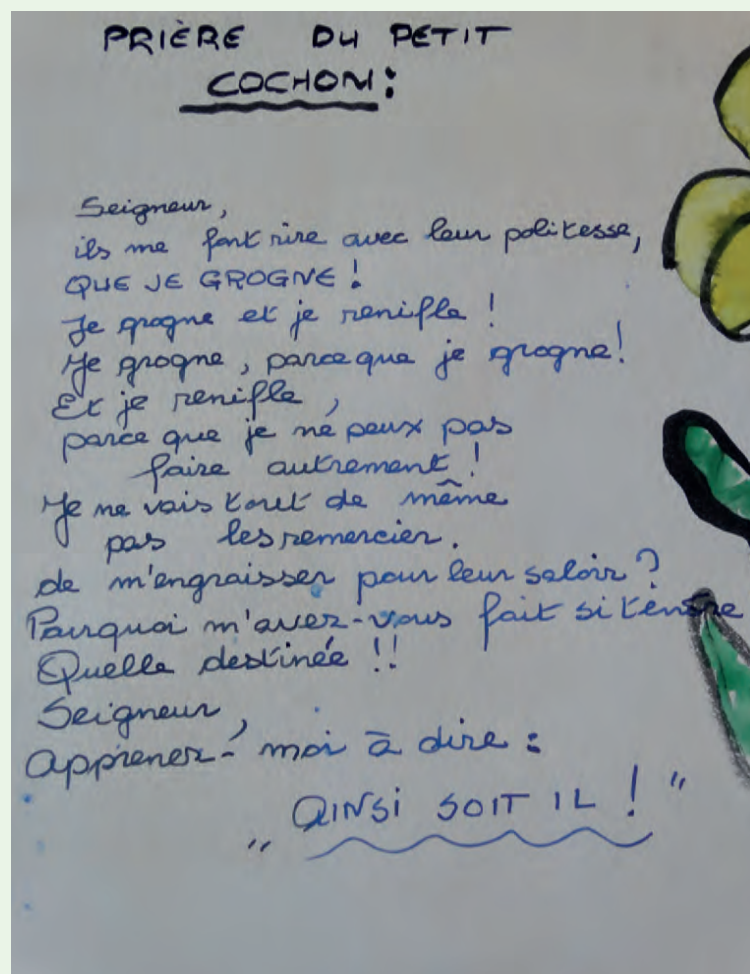 PRIÈRE DU PETIT
COCHON:
Seigneur,
ils me font rire avec leur politesse,
QUE JE GROGNE !
Je grogne et je renifle !
Je grogne, parce que je grogne!
Et je renifle,
parce que je ne peux pas
faire autrement !
Je ne vais tout de même
pas les remercier.
de m'engraisser pour leur saloir ?
Pourquoi m'avez-vous fait si tendre
Quelle destinée !!
Seigneur,
Apprenez-moi à dire :
" AINSI SOIT IL ! "